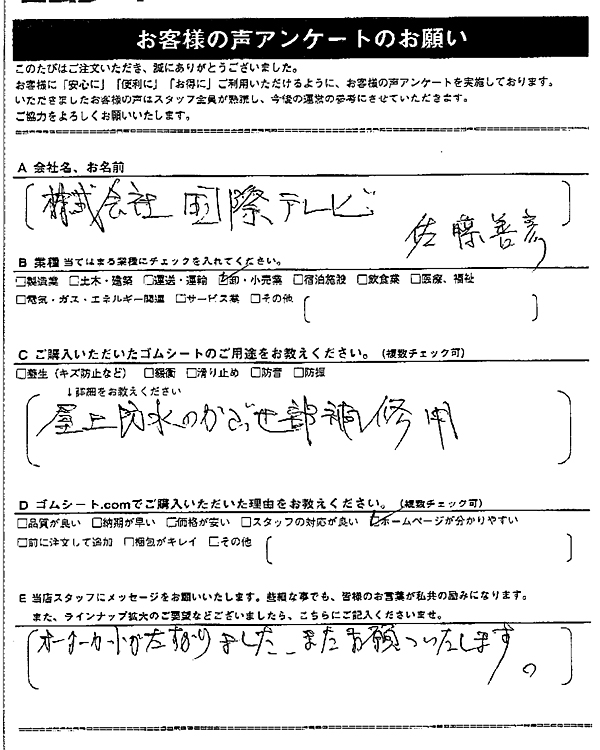 お客様の声アンケートのお願い
このたびはご注文いただき、誠にありがとうございました。
お客様に「安心に」「便利に」「お得に」ご利用いただけるように、お客様の声アンケートを実施しております。
いただきましたお客様の声はスタッフ全員が熟読し、今後の運営の参考にさせていただきます。
ご協力をよろしくお願いいたします。
A 会社名、お名前
株式会社 国際テレビ
佐藤善彦
B 業種 当てはまる業種にチェックを入れてください。
□製造業 □土木・建築 □運送・運輸 ☑卸・小売業 □宿泊施設 □飲食業 □医療、福祉
□電気・ガス・エネルギー関連 □サービス業 □その他
C ご購入いただいたゴムシートのご用途をお教えください。(複数チェック可)
□養生(キズ防止など) □緩衝 □滑り止め □防音 □防振
↓詳細をお教えください
屋上防水のかぶせ部補修用
D ゴムシート.comでご購入いただいた理由をお教えください。(複数チェック可)
□品質が良い □納期が早い □価格が安い □スタッフの対応が良い ☑ホームページが分かりやすい
□前に注文して追加 □梱包がキレイ □その他
E 当店スタッフにメッセージをお願いいたします。些細な事でも、皆様のお言葉が私共の励みになります。
また、ラインナップ拡大のご要望などございましたら、こちらにご記入くださいませ。
オーダーカットがたすかりました、またお願いいたします。